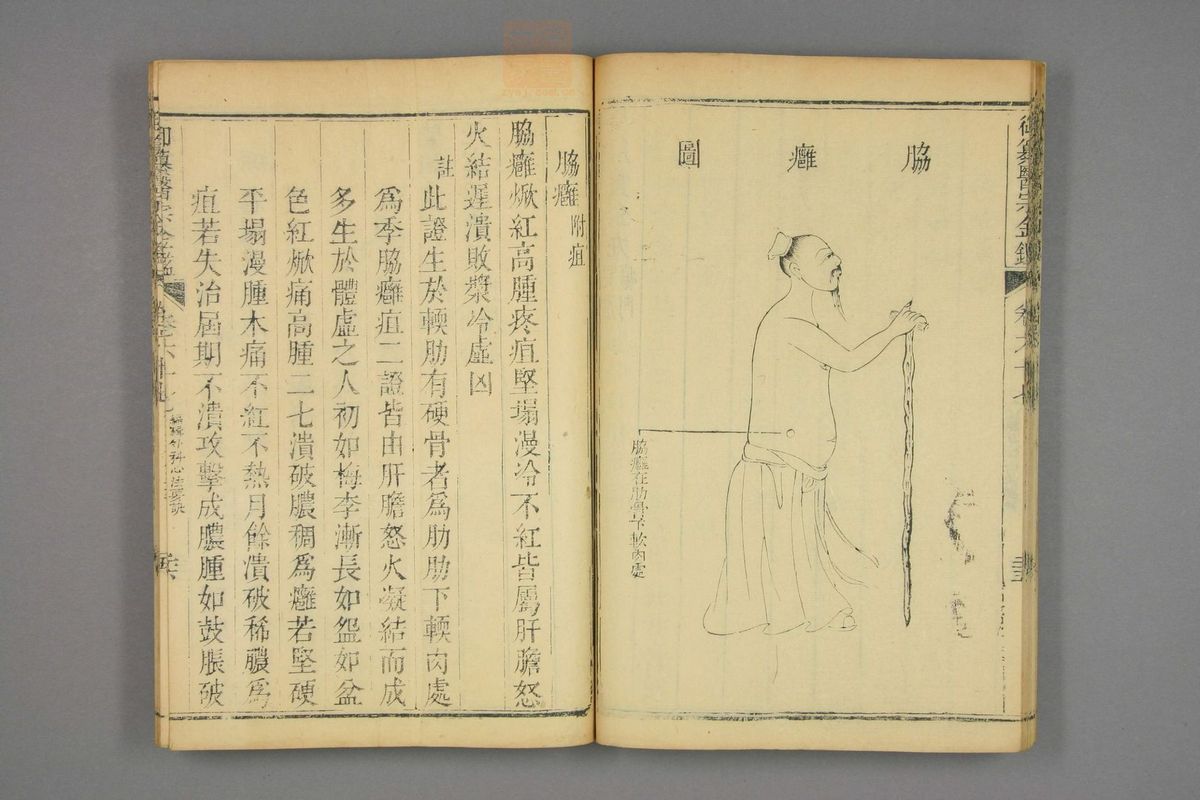 脇癰圖
脇癰在肋骨下軟肉處
脇癰附疽
脇癰焮紅高腫疼疽堅塌漫冷不紅皆屬肝膽怒
火結遲潰敗漿冷虛凶
註此證生於輭肋有硬骨者爲肋肋下輭肉處
爲季脇癰疽二證皆由肝膽怒火凝結而成
多生於體虛之人初如梅李漸長如盌如盆
色紅焮痛高腫二七潰破膿稠爲癰若堅硬
平塌漫腫木痛不紅不熱月餘潰破稀膿爲
疽若失治屆期不潰攻擊成膿腫如鼓脹破
御纂醫宗金鑑
卷六十七
編輯外科心法要訣